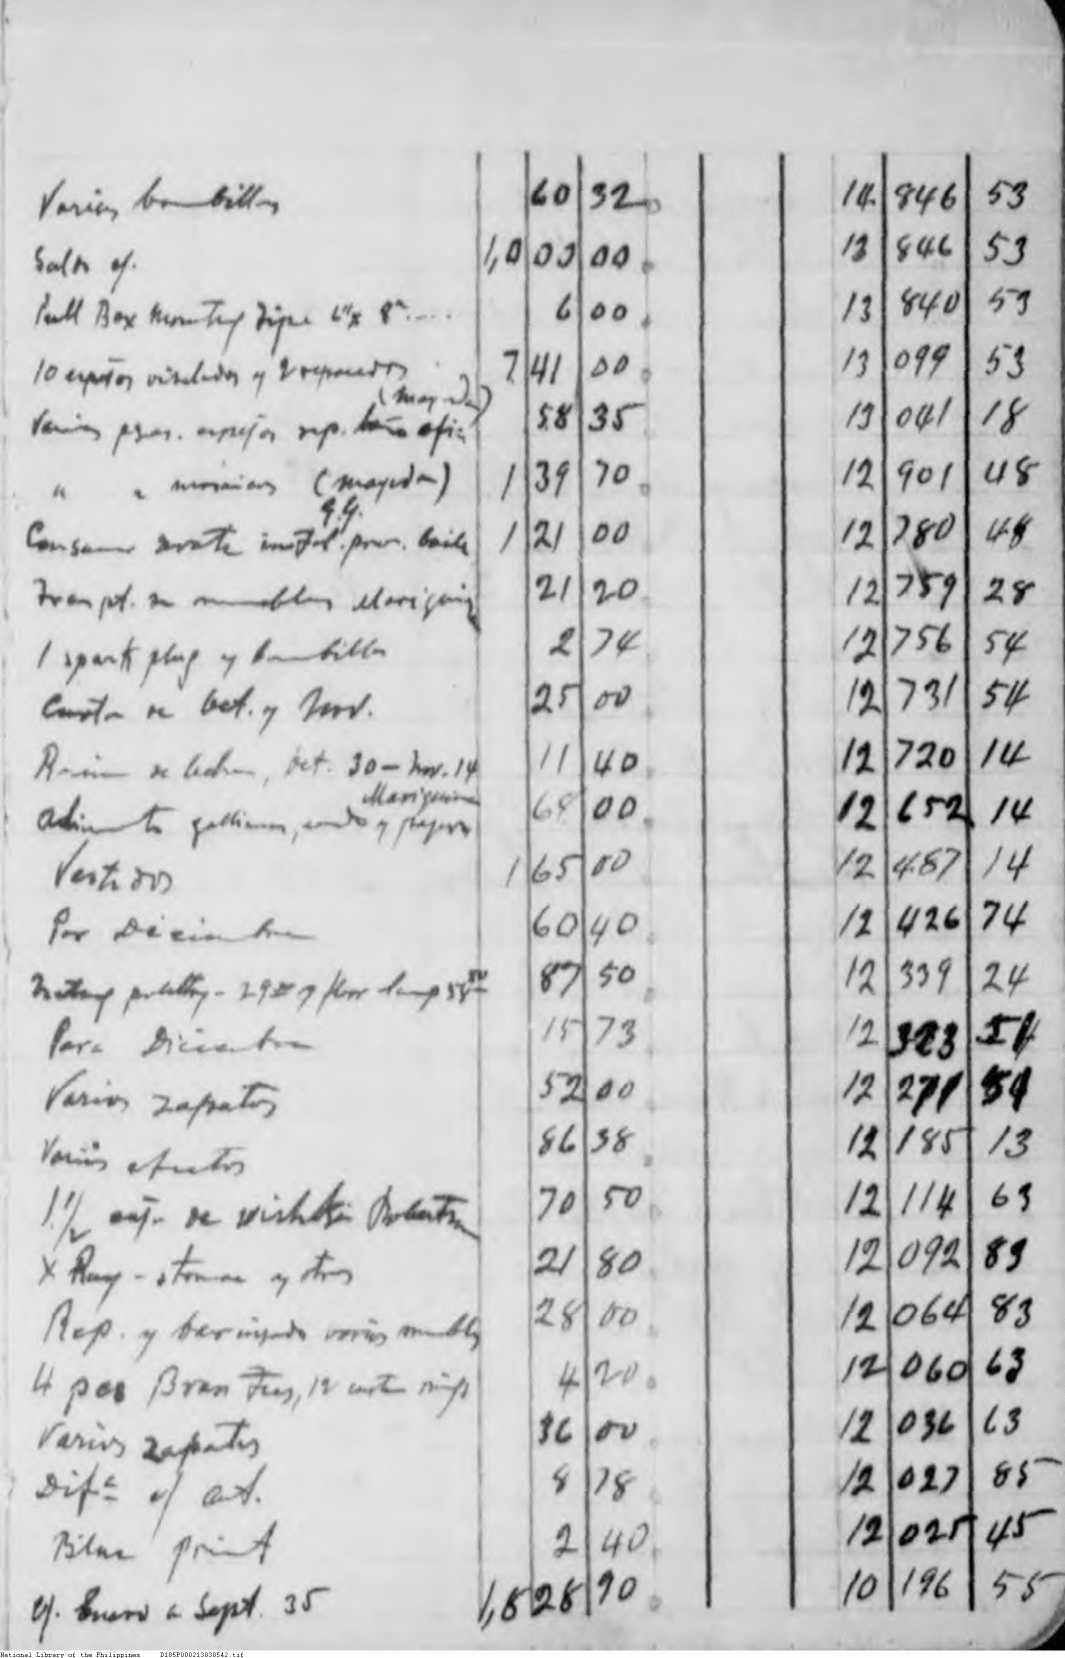 Varias bombillas 60 32 14 846 53
Saldo c/. 1,000 00 13 846 53
Pull Box Mounting Type 6"x 8".... 6 00 13 840 53
10 espejos y 2 741 00 13 099 53
(mayda)
Varias pzas. espejos rep. baño 58 35 13 041 18
" " mosaicos (mayda) 139 70 12 901 48
G.G.
Consumo instal. prov. baile 121 00 12 780 48
Transpt. de muebles Mariquina 21 20 12 759 28
1 spark plug y bombilla 2 74 12 756 54
de Oct. y Nov. 25 00 12 731 54
de leche, Oct. 30 - Nov. 14 11 40 12 720 14
Mariquina
Alimento gallinas, y 68 00 12 652 14
Vestidos 165 00 12 487 14
Por Diciembre 60 40 12 426 74
poultry - 29 y floor lamp 58 50 87 50 12 339 24
Para Diciembre 15 73 12 323 51
Varios zapatos 52 00 12 271 51
Varios efectos 86 38 12 185 13
1 1/2 caj. de Robertson 70 50 12 114 63
X Ray - y otros 21 80 12 092 83
Rep. y barnizado varios muebles 28 00 12 064 83
4 pcs Brass Tees, 12 rings 4 20 12 060 63
Varios zapatos 36 00 12 036 63
Difa. c/ ant. 8 78 12 027 85
Blue print 2 40 12 025 45
c/. Enero a Sept. 35 1,828 90 10 196 55
National Library of the Philippines D185P000213838542.tif